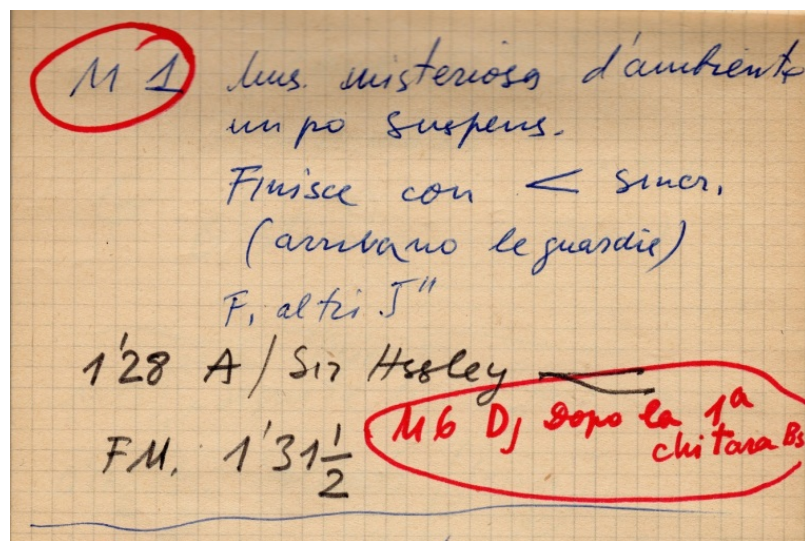 M 1 Mus. misteriosa d'ambiente
un po suspens.
Finisce con < sincr.
(arrivano le guardie)
F, altri 5"
1'28 A / Sir Hssley
FM. 1'31 1/2
M6 DJ Dopo la 1ª
chitara Bs